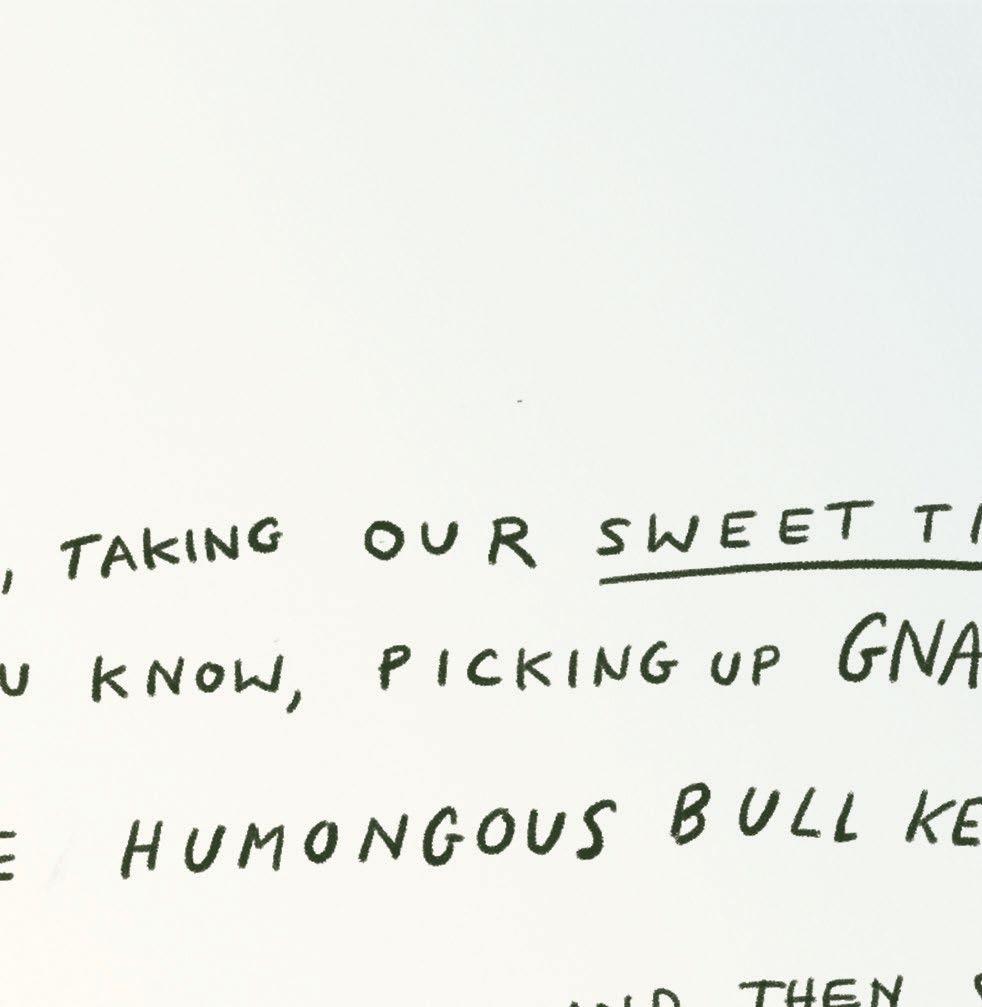 , TAKING OUR SWEET TI
U KNOW, PICKING UP GNA
E HUMONGOUS BULL KE
AND THEN